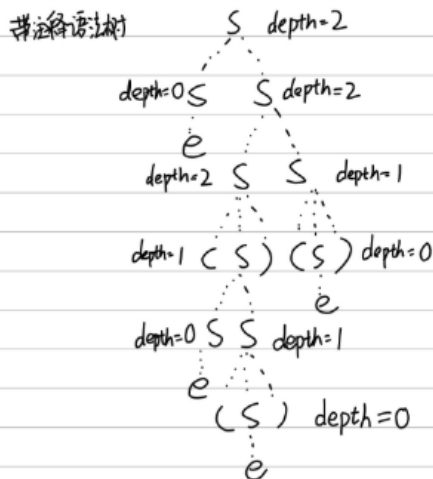 带注释语法树 S depth=2
depth=0 S S depth=2
e
depth=2 S S depth=1
depth=1 (S) (S) depth=0
e
depth=0 S S depth=1
e
(S) depth=0
e